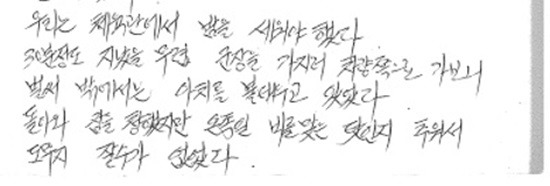 우리는 체육관에서 밤을 세워야 했다
30분정도 지났을 무렵 군장을 가지러 차량쪽으로 가보니
벌써 밖에서는 아치를 불태우고 있었다
돌아와 잠을 청했지만 온종일 비를맞은 탓인지 추워서
도무지 잘수가 없었다.